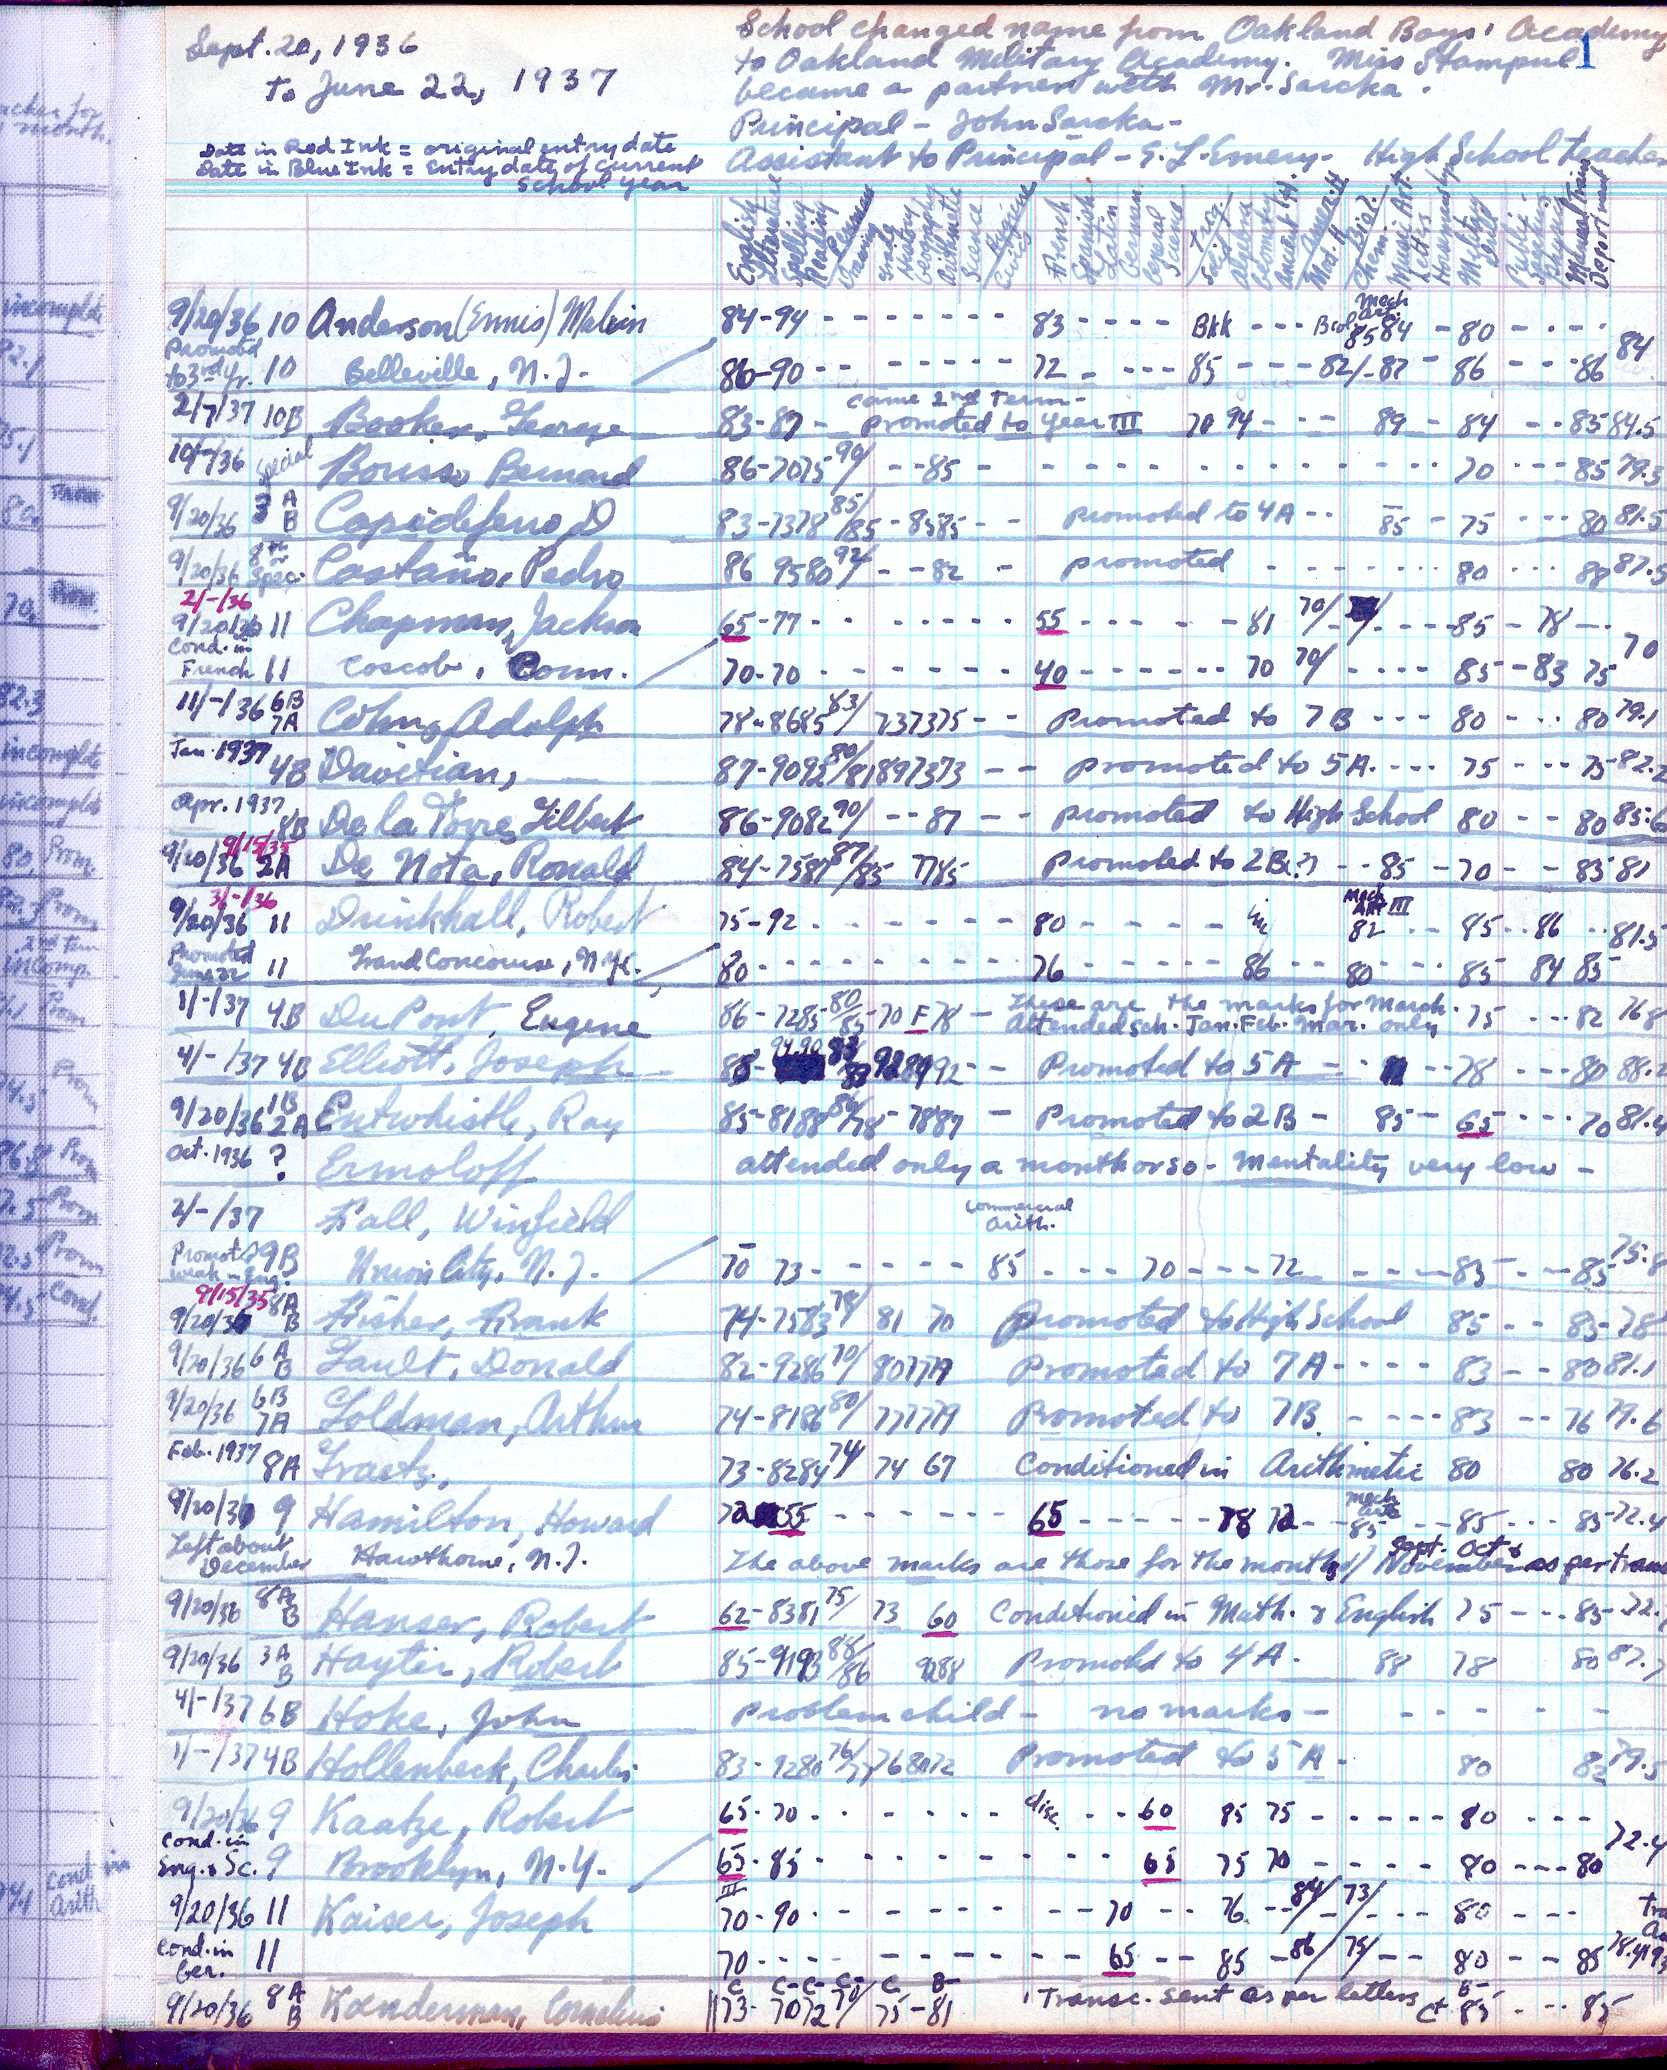 Sept. 20, 1936
to June 22, 1937
Date in Red Ink = original entry date
Date in Blue Ink = Entry date of current
School year
School changed name from Oakland Boys' Academy
to Oakland Military Academy. Miss Stampul
became a partner with Mr. Sarcka.
Principal - John Sarcka -
Assistant to Principal - E. L. Emery - High School teacher
1
English Literature Spelling Reading Penman Drawing History Geography Arithmetic Science Hygiene Civics French Spanish Latin German General Science Algebra Geometry Chem. Biol. Military Drill Public Speaking Physics Manual Train. Deportment
9/20/36 10 Anderson (Ennis) Melvin 84-94 - - - - - - 83 - - - - Bkk - - - Biol 85 84 - 80 - - - -
Promoted to 3rd Yr. 10 Belleville, N.J. 86-90 - - - - - - - 72 - - - - 85 - - - 82/-87 - 86 - - - 86 84
came 2nd Term -
2/7/37 10B Booker, George 83-87 - promoted to Year III 70 94 - - - 89 - 84 - - - 85 84.5
10/-/36 Special Bousso Bernard 86-7075 90/ - - 85 - - - - 70 - - - 85 79.3
9/20/36 3 A B Capidefeno, D 83-7378 85/85 - 8585 - - Promoted to 4A - - 85 - 75 - - - 80 81.5
9/20/36 8th Spec. Castaño, Pedro 86 9580 92/ - - 82 - promoted - - - - 80 - - - 88 87.5
2/-/36
9/20/36 11 Chapman, Jackson 65-77 - - - - - - 55 - - - - - 81 70/ - - - 85 - 78 - -
Cond. in French 11 Coscob, Conn. 70-70 - - - - - - 40 - - - - - 70 70/ - - - - 85 - 83 75 70
11/-/36 6B 7A Cohn, Adolph 78-8685 83/ 737375 - - Promoted to 7B - - - 80 - - - 80 79.1
Jan. 1937 4B Davitian, 87-9092 80/81897373 - - promoted to 5A - - - 75 - - - 75 82.2
Apr. 1937 8B De la Torre, Gilbert 86-9082 90/ - - 87 - - promoted to High School 80 - - 80 85.6
9/15/35
9/20/36 2A De Nota, Ronald 84-7587 87/85 7785 Promoted to 2B(?) - - 85 - 70 - - 85 81
3/-/36
9/20/36 11 Drinkhall, Robert 75-92 - - - - - - 80 - - - - - inc Mech Art III 82 - - 85 - - 86 - - 81.5
Promoted June 22 11 Grand Concourse, N.Y.C. 80 - - - - - - - 76 - - - - - 86 - - 80 - - - 85 84 85
1/-/37 4B DuPont, Eugene 86-7285 80/85-70 F 78 - These are the marks for March. 75 - - - 82 76.8
Attended Sch. Jan. Feb. Mar. only
4/-/37 4B Elliott, Joseph 94 90 83 92 - Promoted to 5A - - 78 - - - 80 88.2
9/20/36 1B 2A Entwhistle, Ray 85-8188 86/78 - 7887 - Promoted to 2B - 85 - 65 - - - 70 81.4
Oct. 1936 ? Ermoloff attended only a month or so - Mentality very low -
2/-/37 Fall, Winfield Commercial Arith.
Promoted weak in Eng. 9B Union City, N.J. 70 73 - - - - - 85 - - - - 70 - - - 72 - - - - 85 - - - 85 75.8
9/15/35
9/20/36 8A B Fisher, Frank 74-7583 78/ 81 70 Promoted to High School 85 - - 85 - 78
9/20/36 6 A B Gault, Donald 82-9286 70/ Promoted to 7A - - - - 83 - - 80 81.1
9/20/36 6B 7A Goldman, Arthur 74-8186 80/ Promoted to 7B - - - - 83 - - 76 79.6
Feb. 1937 8A Graetz, 73-8284 74/ 74 67 Conditioned in Arithmetic 80 80 76.2
9/20/36 9 Hamilton, Howard 72 55 - - - - - - 65 - - - - - 78 72 - - Mech Arts 85 - - 85 - - - 85 72.4
Left about December Hawthorne, N.J. The above marks are those for the months of Sept. Oct & November as per trans
9/20/36 8A B Hanser, Robert 62-8381 75/ 73 60 Conditioned in Math. & English 75 - - - 85
9/20/36 3 A B Hayter, Robert 85-9193 88/86 9288 Promoted to 4A - 88 78 80 87.7
4/-/37 6B Hoke, John problem child - no marks - - - - - -
1/-/37 4B Hollenbeck, Charles 83-9280 76/ 768072 Promoted to 5A - 80 82 79.5
9/20/36 9 Kaatze, Robert 65-70 - - - - - - disc. - - 60 85 75 - - - - - 80 - - -
Cond. in Eng. & Sc. 9 Brooklyn, N.Y. 65-85 - - - - - - - - 65 75 70 - - - - - 80 - - - 80 72.4
III
9/20/36 11 Kaiser, Joseph 70-90 - - - - - - - - 70 - - 76 - - 84/ - 73/ - - - 80 - - -
Cond. in Ger. 11 70 - - - - - - - 65 - - 85 - 86/ 75/ - - 80 - - 85
C C-C- C-/ C B- B-
9/20/36 8 A B Kenderman, Cornelius 73-7072 70/ 75-81 Transc. sent as per letters C+ 85 - - - 85